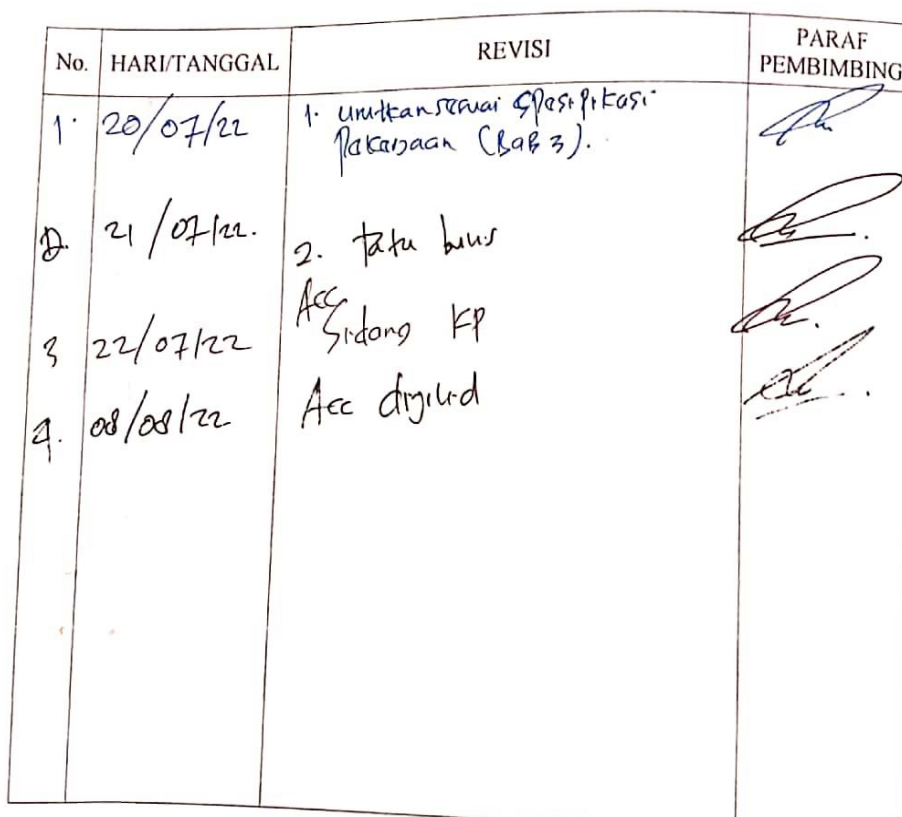 No. HARI/TANGGAL REVISI PARAF PEMBIMBING
1. 20/07/22 1. urutkan sesuai spesifikasi
Pekerjaan (BaB 3).
2. 21/07/22. 2. tata tulis
3 22/07/22 Acc Sidang KP
4. 08/08/22 Acc dijilid